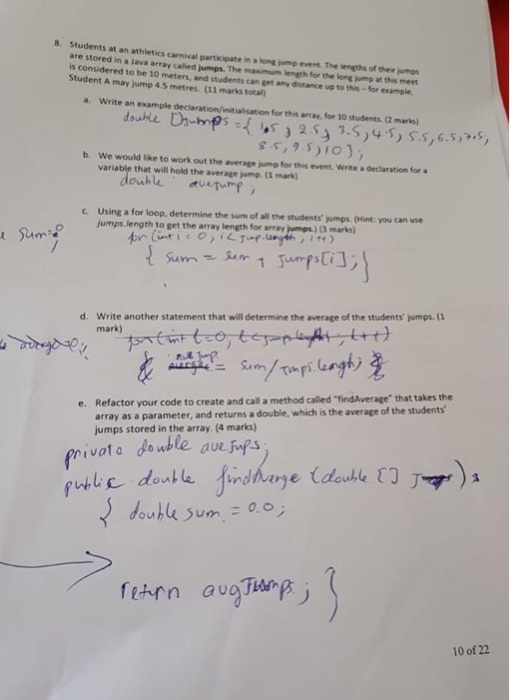 8. Students at an athletics carnival participate in a long jump event. The lengths of their jumps
are stored in a Java array called jumps. The maximum length for the long jump at this meet
is considered to be 10 meters, and students can get any distance up to this - for example,
Student A may jump 4.5 metres. (11 marks total)
a. Write an example declaration/initialisation for this array, for 10 students. (2 marks)
double []jumps = { 1.5, 2.5, 3.5, 4.5, 5.5, 6.5, 7.5,
8.5, 9.5, 10 };
b. We would like to work out the average jump for this event. Write a declaration for a
variable that will hold the average jump. (1 mark)
double avejump;
c. Using a for loop, determine the sum of all the students' jumps. (Hint: you can use
jumps.length to get the array length for array jumps.) (3 marks)
for (int i = 0, i<
{ sum = sum + jumps[i]; }
d. Write another statement that will determine the average of the students' jumps. (1
mark)
= sum/
e. Refactor your code to create and call a method called "findAverage" that takes the
array as a parameter, and returns a double, which is the average of the students'
jumps stored in the array. (4 marks)
private double
public double (double []
{ double sum = 0.0;
return }
10 of 22